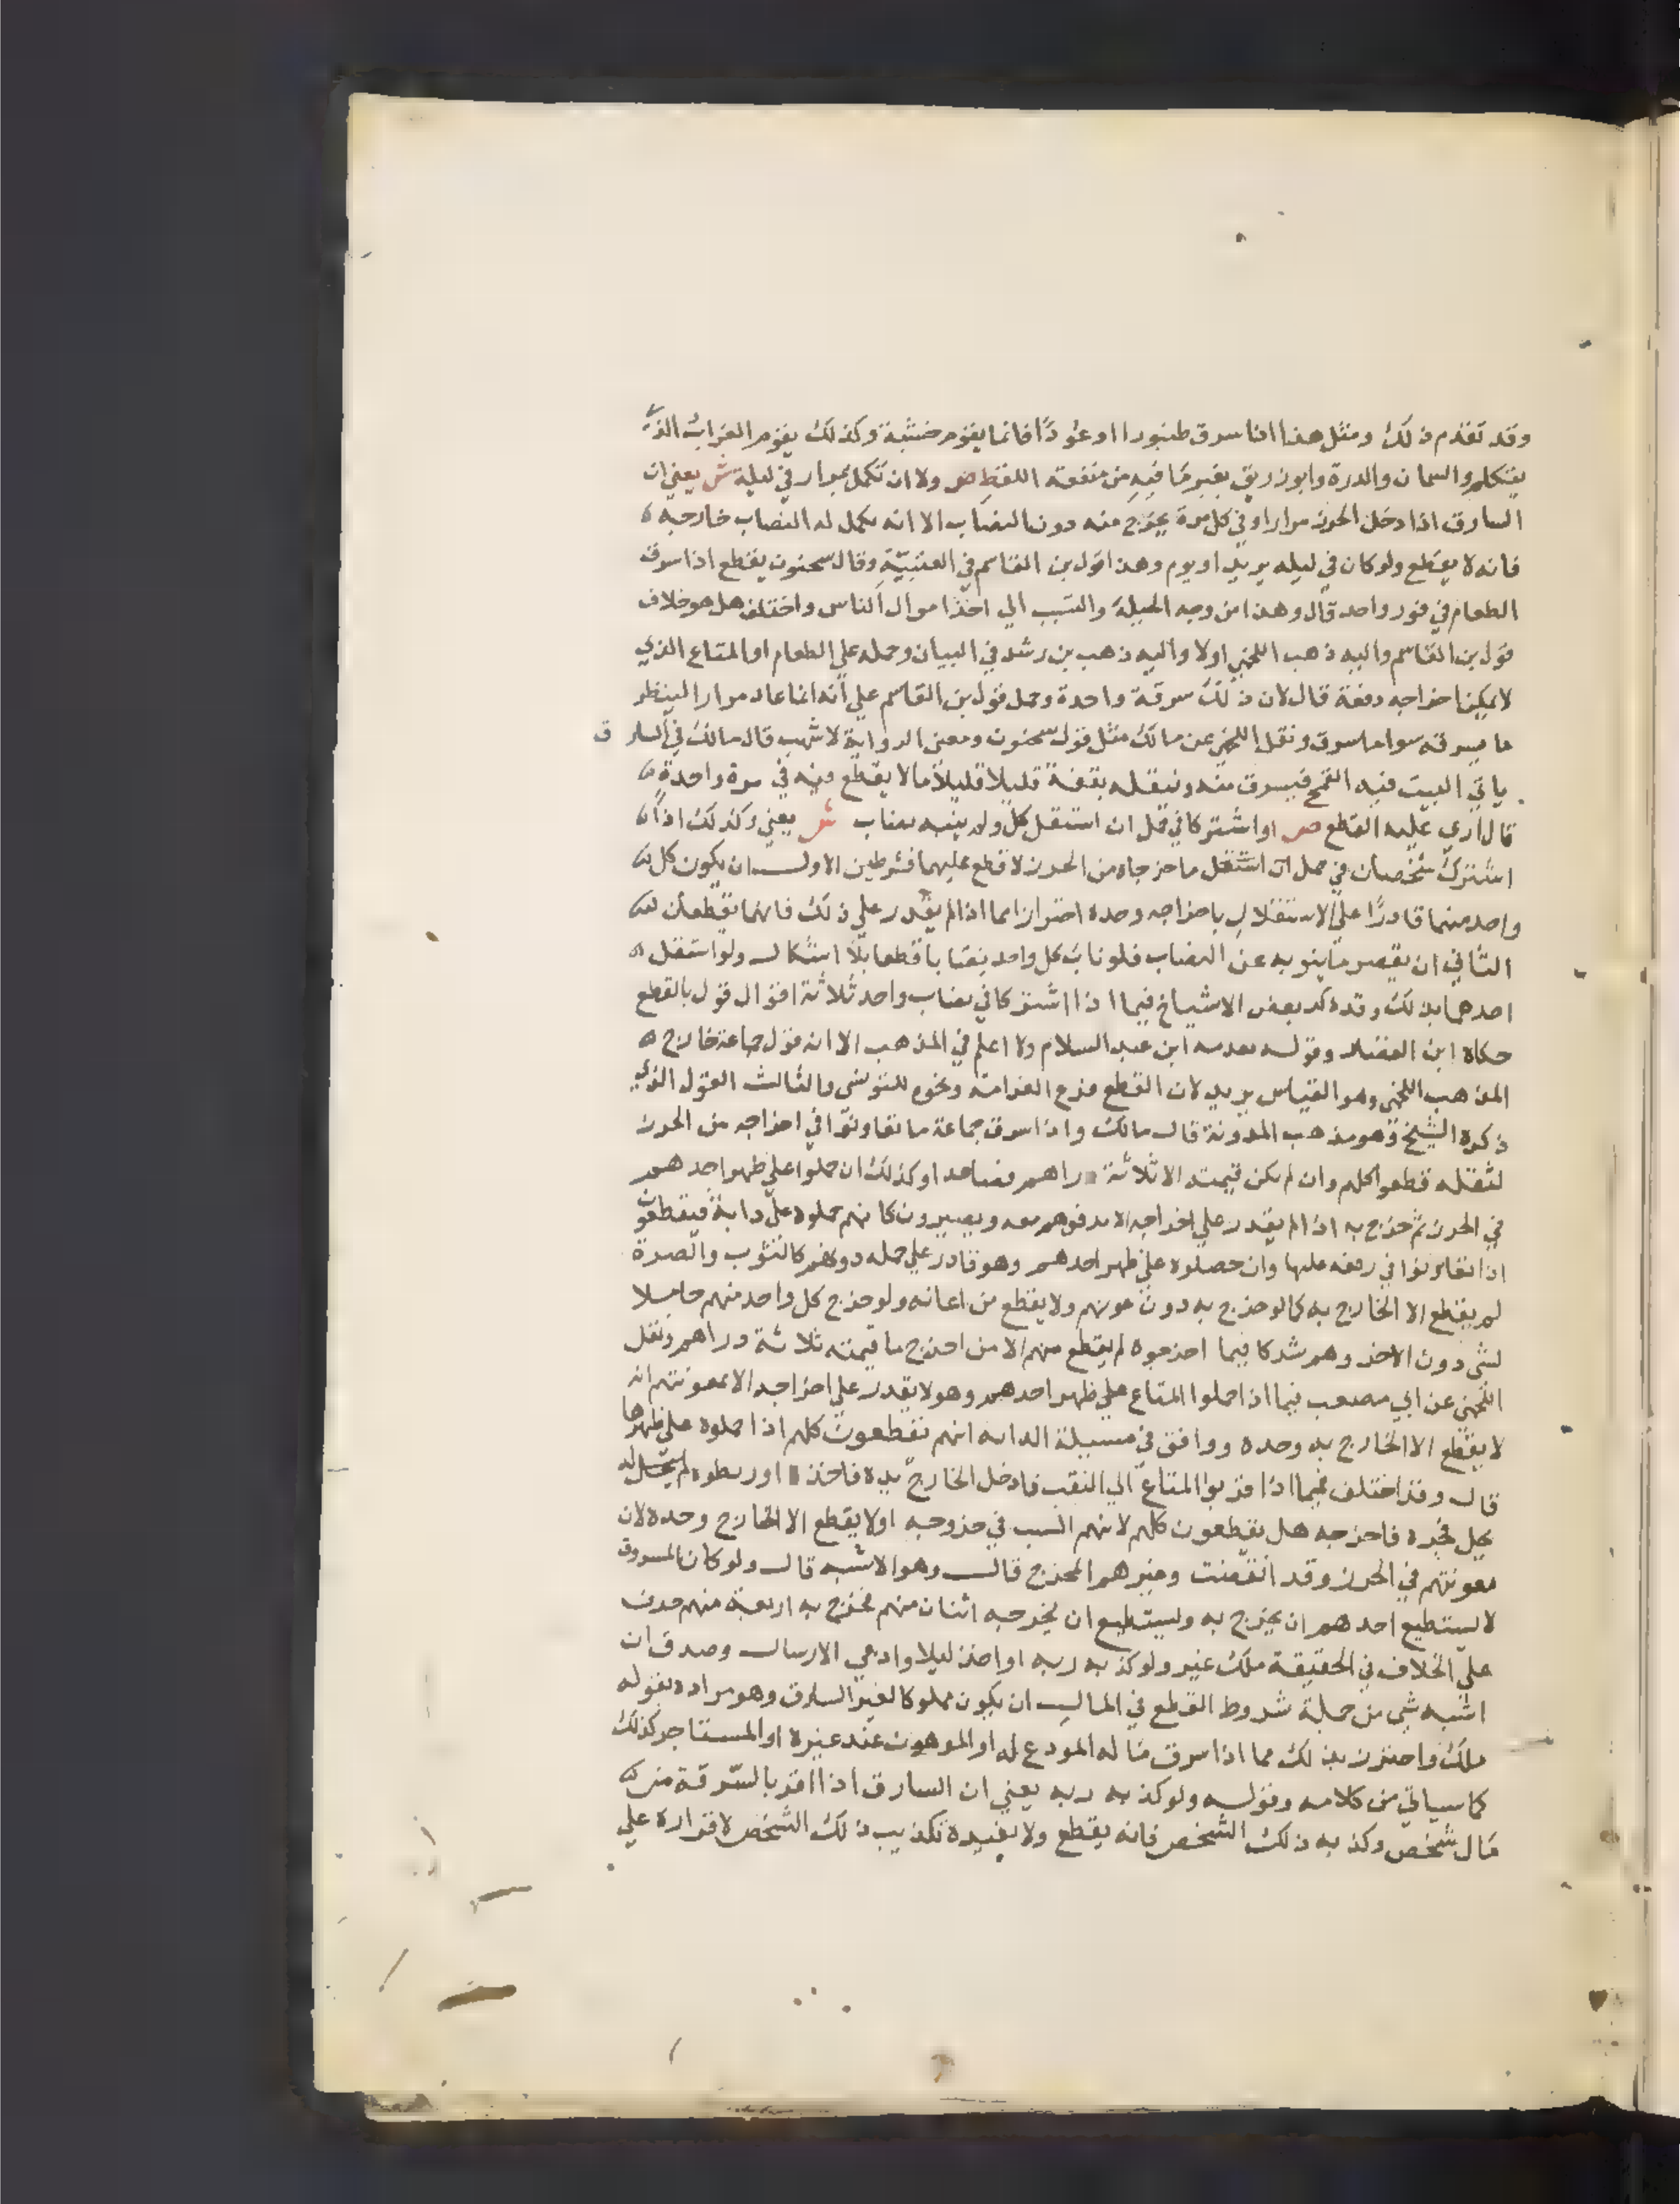 وقد تقدم ذلك ومثل هذا اذا سرق طنبورا او عودًا فانما يقوم خشبة وكذلك يقوم الغراب الذي
يتكلم والسمان والدرة وابو زريق بغير ما فيه من منفعة اللفظ ص ولا ان تكمل بمرار في ليلة ش يعني ان
السارق اذا دخل الحرز مرارا وفي كل مرة يخرج منه دون النصاب الا انه يكمل له النصاب خارجه
فانه لا يقطع ولو كان في ليله يريد او يوم وهذا قول بن القاسم في العتبيّة وقال سحنون يقطع اذا سرق
الطعام في فور واحد قال وهذا من وجه الحيلة والتسبب الي اخذ اموال الناس واختلف هل هو خلاف
قول بن القاسم واليه ذهب اللخمي اولا واليه ذهب بن رشد في البيان وحمله علي الطعام او المتاع الذي
لا يمكن اخراجه دفعة قال لان ذلك سرقة واحدة وحمل قول بن القاسم علي انه انما عاد مرارا لينظر
ما يسرقه سوا ما سرق ونقل اللخمي عن مالك مثل قول سحنون ومعني الرواية لاشهب قال مالك في السارق
ياتي البيت فيه القمح فيسرق منه وينقله بقفة قليلا قليلاً ما لا يقطع فيه في مرة واحدة
قال اري عليه القطع ص او اشتركا في حمل ان استقل كل ولم ينبه نصاب ش يعني وكذلك اذا
اشترك شخصان في حمل ان استقل ما خرجاه من الحرز لا قطع عليهما بشرطين الاول ان يكون كل
واحد منهما قادرًا علي الاستقلال باخراجه وحده احترازا مما اذا لم يقدر علي ذلك فانهما يقطعان
الثاني ان يقصر ما ينوبه عن النصاب فلو ناب كل واحد نصابا قطعا بلا اشكال ولو استقل
احدهما بذلك وقد ذكر بعض الاشياخ فيما اذا اشتركا في نصاب واحد ثلاثة اقوال قول بالقطع
حكاه ابن القصار وقول بعدمه ابن عبد السلام ولا اعلم في المذهب الا انه قول جماعة خارج
المذهب اللخمي وهو القياس يريد لان القطع فرع الغرامة ونحوه للتونسي والثالث القول الذي
ذكره الشيخ وهو مذهب المدونة قال مالك واذا سرق جماعة ما تعاونوا في اخراجه من الحرز
لثقله قطعوا كلهم وان لم يكن قيمته الا ثلاثة دراهم فصاعدا وكذلك ان حملوا علي ظهر احدهم
في الحرز ثم خرج به اذا لم يقدر علي اخراجه الا برفعهم معه ويصيرون كانهم حملوه علي دابة فيقطعون
اذا تعاونوا في رفعه عليها وان حصلوه علي ظهر احدهم وهو قادر علي حمله دونهم كالثوب والصرة
لم يقطع الا الخارج به كما لو خرج به دون عونهم ولا يقطع من اعانه ولو خرج كل واحد منهم حاملا
لشي دون الاخر وهم شركا فيما اخرجوه لم يقطع منهم الا من اخرج ما قيمته ثلاثة دراهم ونقل
اللخمي عن ابي مصعب فيما اذا حملوا المتاع علي ظهر احدهم وهو لا يقدر علي اخراجه الا بمعونتهم انه
لا يقطع الا الخارج به وحده ووافق في مسيلة الدابه انهم يقطعون كلهم اذا حملوه علي ظهرها
قال وقد اختلف فيما اذا قربوا المتاع الي النقب فادخل الخارج يده فاخذه او ربطوه له
بحبل فجره فاخرجه هل يقطعون كلهم لانهم السبب في خروجه او لا يقطع الا الخارج وحده لان
معونتهم في الحرز وقد انقضت وغيرهم المخرج قال وهو الاشبه قال ولو كان المسروق
لا يستطيع احدهم ان يخرج به ويستطيع ان يخرجه اثنان منهم فخرج به اربعة منهم جرت
علي الخلاف في الحقيقة ملك غير ولو كذبه ربه او اخذ ليلا وادعي الارسال وصدق ان
اشبه شي من جملة شروط القطع في المال ان يكون مملوكا لغير السارق وهو مراده بقوله
ملك واحترز بذلك مما اذا سرق ما له المودع له او المرهون عند غيره او المستاجر كذلك
كما سياتي من كلامه وقوله ولو كذبه ربه يعني ان السارق اذا اقر بالسرقة من
مال شخص وكذبه ذلك الشخص فانه يقطع ولا يفيده تكذيب ذلك الشخص لاقراره علي